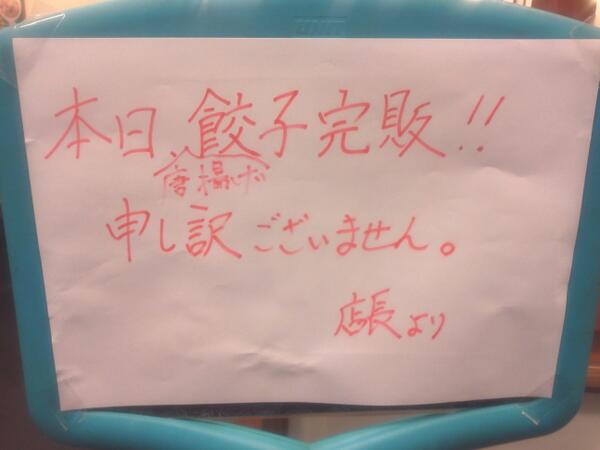 本日、餃子完販!!
唐揚げ
申し訳ございません。
店長より